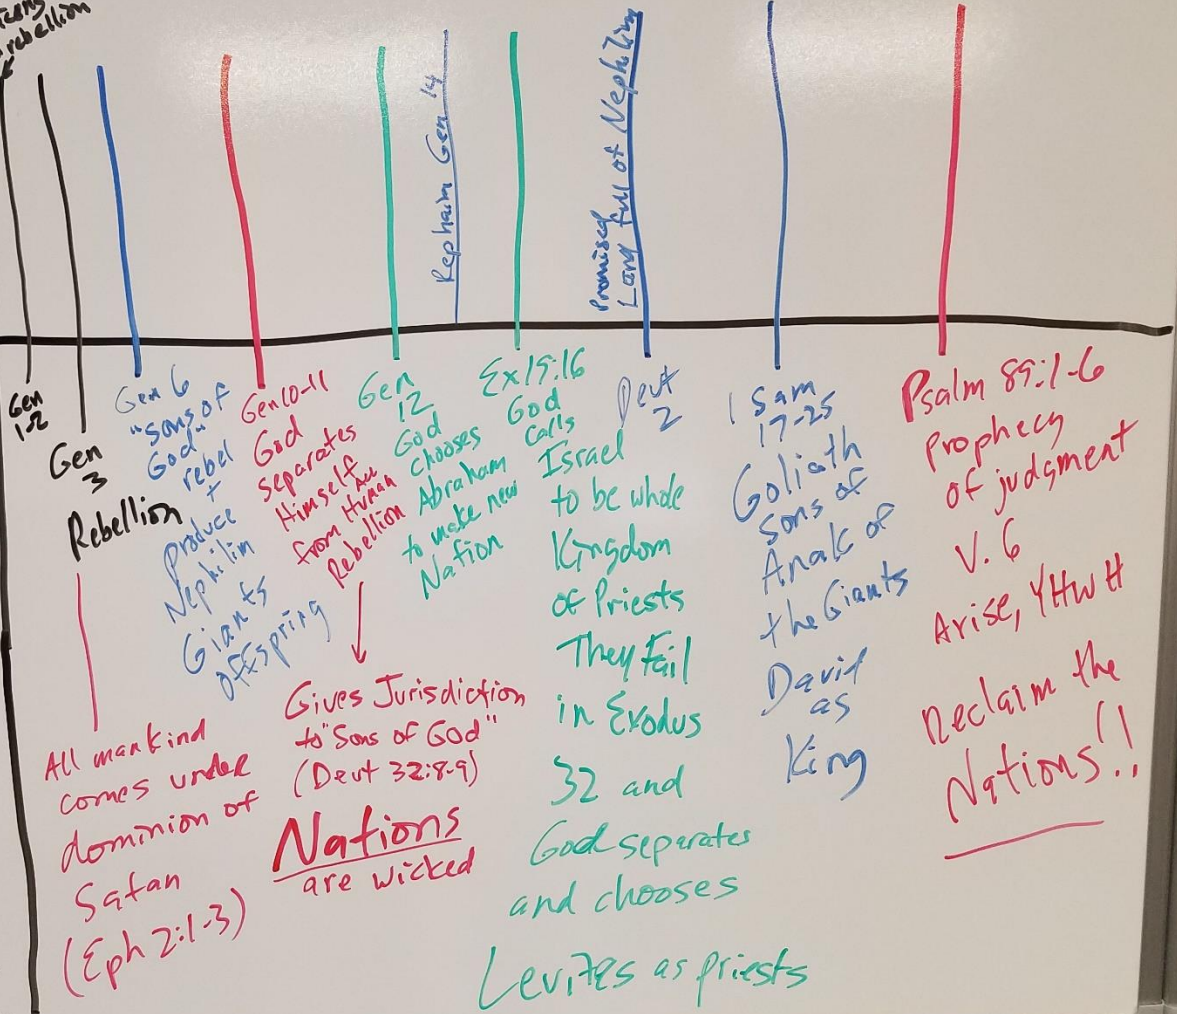 rebellion
Rephaim Gen 14
Promised
Land full of Nephilim
Gen
1-2
Gen
3
Rebellion
All mankind
comes under
dominion of
Satan
(Eph 2:1-3)
Gen 6
"sons of
God"
rebel
+
produce
Nephilim
Giants
offspring
Gen 10-11
God
separates
Himself
from All Human
Rebellion
Gives Jurisdiction
to "Sons of God"
(Deut 32:8-9)
Nations
are wicked
Gen
12
God
chooses
Abraham
to make new
Nation
Ex 19:16
God
calls
Israel
to be whole
Kingdom
of Priests
They Fail
in Exodus
32 and
God separates
and chooses
Levites as priests
Deut
2
1 Sam
17-25
Goliath
sons of
Anak of
the Giants
David
as
King
Psalm 89:1-6
prophecy
of judgment
V. 6
Arise, YHWH
Reclaim the
Nations!!